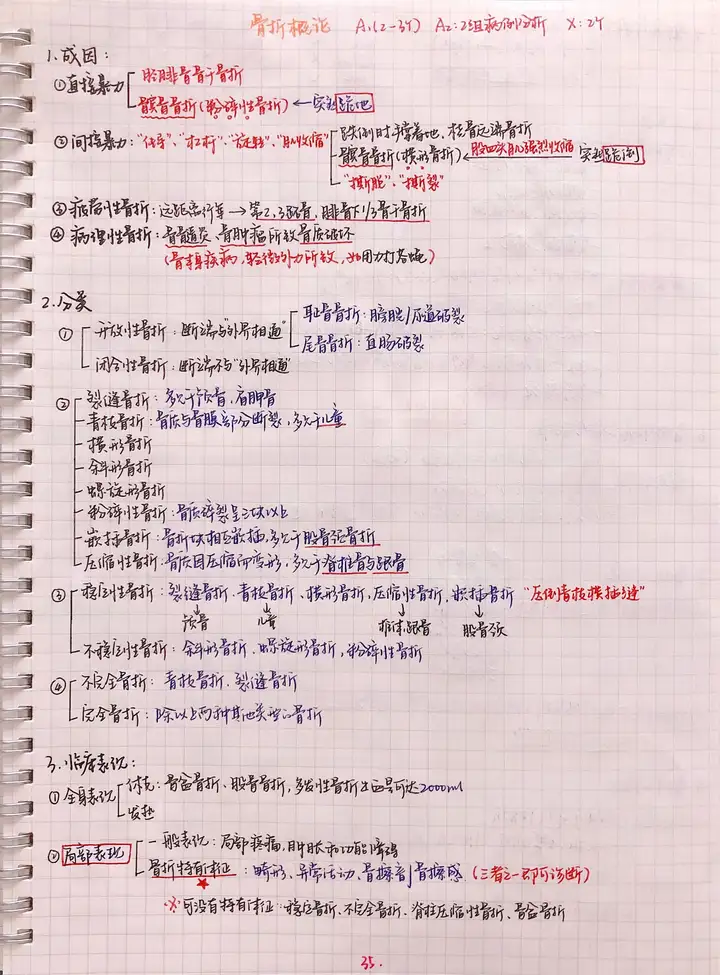 骨折概论 A1(2-3个) A2:2组病例分析 X:2个
1.成因:
①直接暴力 胫腓骨骨干骨折
髌骨骨折(粉碎性骨折)←实则跪地
②间接暴力:"传导"、"杠杆"、"旋转"、"肌收缩" 跌倒时手撑着地、桡骨远端骨折
髌骨骨折(横形骨折)←股四头肌强烈收缩 实则跪倒
"撕脱"、"撕裂"
③疲劳性骨折:远距离行军→第2,3跖骨,腓骨下1/3骨干骨折
④病理性骨折:骨髓炎、骨肿瘤所致骨质破坏
(骨本身疾病,轻微的外力所致,如用力打苍蝇)
2.分类
① 开放性骨折:断端与"外界相通" 耻骨骨折:膀胱/尿道破裂
尾骨骨折:直肠破裂
闭合性骨折:断端不与"外界相通"
② 裂缝骨折:多见于颅骨,肩胛骨
青枝骨折:骨质与骨膜部分断裂,多见于儿童
横形骨折
斜形骨折
螺旋形骨折
粉碎性骨折:骨质碎裂呈三块以上
嵌插骨折:骨折块相互嵌插,多见于股骨颈骨折
压缩性骨折:骨质因压缩而变形,多见于脊椎骨与跟骨
③ 稳定性骨折:裂缝骨折、青枝骨折、横形骨折,压缩性骨折,嵌插骨折 "压倒青枝横插缝"
颅骨 儿童 椎体,跟骨 股骨颈
不稳定性骨折:斜形骨折、螺旋形骨折,粉碎性骨折
④ 不完全骨折:青枝骨折、裂缝骨折
完全骨折:除以上两种其他类型的骨折
3.临床表现:
①全身表现 休克:骨盆骨折、股骨骨折,多发性骨折出血量可达2000ml
发热
②局部表现 一般表现:局部疼痛,肿胀和功能障碍
骨折特有体征:畸形、异常活动、骨擦音/骨擦感(三者之一即可诊断)
※可没有特有体征:稳定骨折、不完全骨折、脊柱压缩性骨折、骨盆骨折
35.